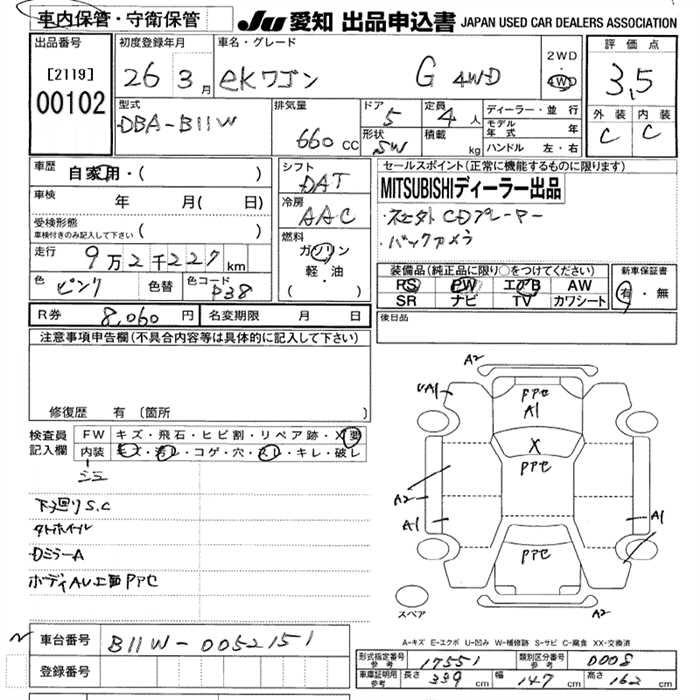 車内保管・守衛保管
JU 愛知 出品申込書 JAPAN USED CAR DEALERS ASSOCIATION
出品番号
[2119]
00102
初度登録年月
26 3 月
車名・グレード
ekワゴン G 4WD
2WD
4WD
評価点
3,5
外装 内装
C C
型式
DBA-B11W
排気量
660 CC
ドア
5
形状
SW
定員
4 人
積載
kg
ディーラー・並行
モデル年式 年
ハンドル 左・右
車歴
自家用・( )
車検
年 月( 日)
受検形態
車検付きのみ記入して下さい ( )
走行
9万2千227 km
色
ピンク
色替
色コード
P38
シフト
DAT
冷房
AAC
燃料
ガソリン
軽・油
( )
セールスポイント(正常に機能するものに限ります)
MITSUBISHIディーラー出品
・社外CDプレーヤー
・バックカメラ
装備品(純正品に限り○をつけてください)
PS PW エアB AW
SR ナビ TV カワシート
新車保証書
有・無
後日品
R券 8,060 円 名変期限 月 日
注意事項申告欄(不具合内容等は具体的に記入して下さい)
修復歴 有(箇所 )
検査員記入欄
FW キズ・飛石・ヒビ割・リペア跡・X要
内装 キズ・汚レ・コゲ・穴・スレ・キレ・破レ
シミ
下廻りS.C
タトホイール
DミラーA
ボディAU工部PアC
A2
A1
PアC
A1
X
PアC
A2
A1
A1
PアC
A2
スペア
A-キズ E-エクボ U-凹み W-補修跡 S-サビ C-腐食 XX-交換済
車台番号 B11W-0052151
登録番号
形式指定番号 参考 17551
類別区分番号 参考 0008
車庫証明用 参考 長さ 339 cm 幅 147 cm 高さ 162 cm